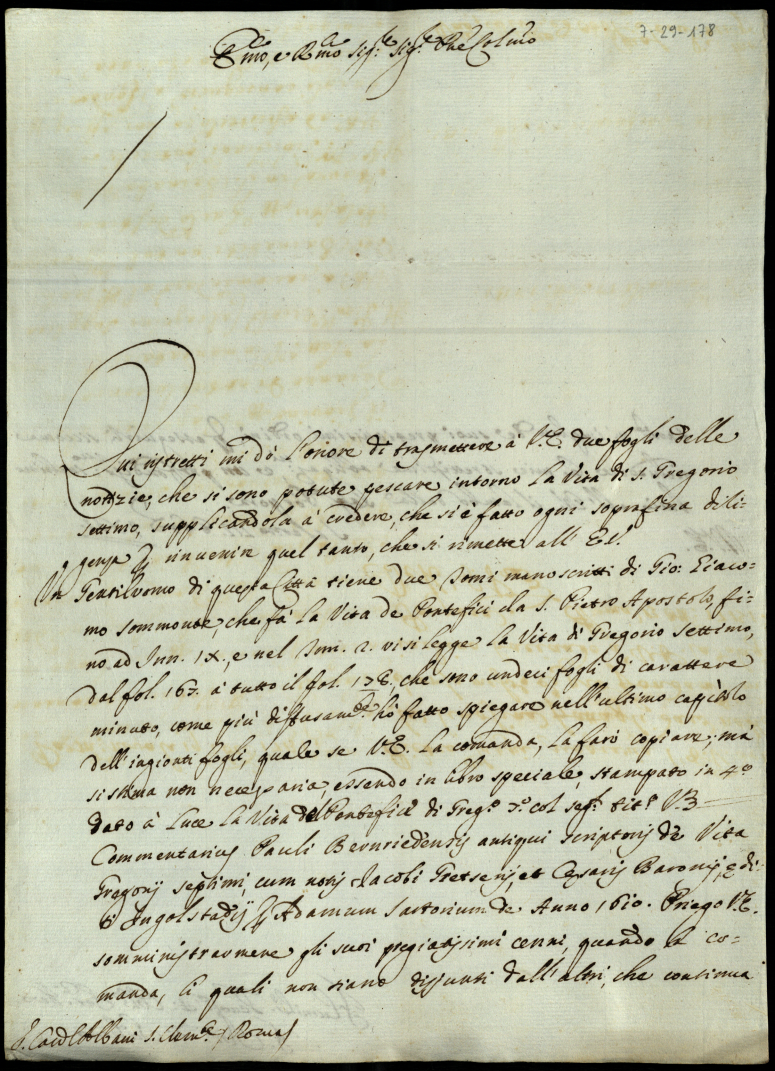 7-29-178
Emo, e Rmo Sig.re Sig.re Pne Colmo
Qui ristretti mi dò l'onore di trasmettere à V.E. due fogli delle
notizie, che si sono potute pescare intorno la Vita di S. Gregorio
settimo, supplicandola à credere, che si è fatto ogni soprafina dili-
genza p rinvenire quel tanto, che si rimette all' E.V.
Un Gentilvomo di questa Città tiene due Tomi manoscritti di Gio: Giaco-
mo Sommonte, che fà la Vita de Pontefici da S. Pietro Apostolo, fi-
no ad Inn. IX, e nel Tom. 2. vi si legge la Vita di Gregorio settimo,
dal fol. 167. à tutto il fol. 178, che sono undeci fogli di carattere
minuto, come più diffusam.te hò fatto spiegare nell'ultimo capitolo
dell'ingionti fogli, quale se V.E. la comanda, la farò copiare; mà
si stima non necessaria, essendo in libro speciale, stampato in 4º
dato à luce la Vita del Pontefice di Greg.º 7.º col seg.te tit.º Vz
Commentarius Pauli Bernriedensis antiqui scriptoris de Vita
Gregorij septimi, cum notis Jacobi Gretseri, et Cesaris Baronij, edi-
tus Ingolstadij p Adamum Sartorium de Anno 1610. Priego V.E.
somministrarmene gli suoi pregiatissimi cenni, quando la co-
manda, li quali non siano disgiunti dall'altri, che continua
S. Card. Albani S. Clem.te / Roma /